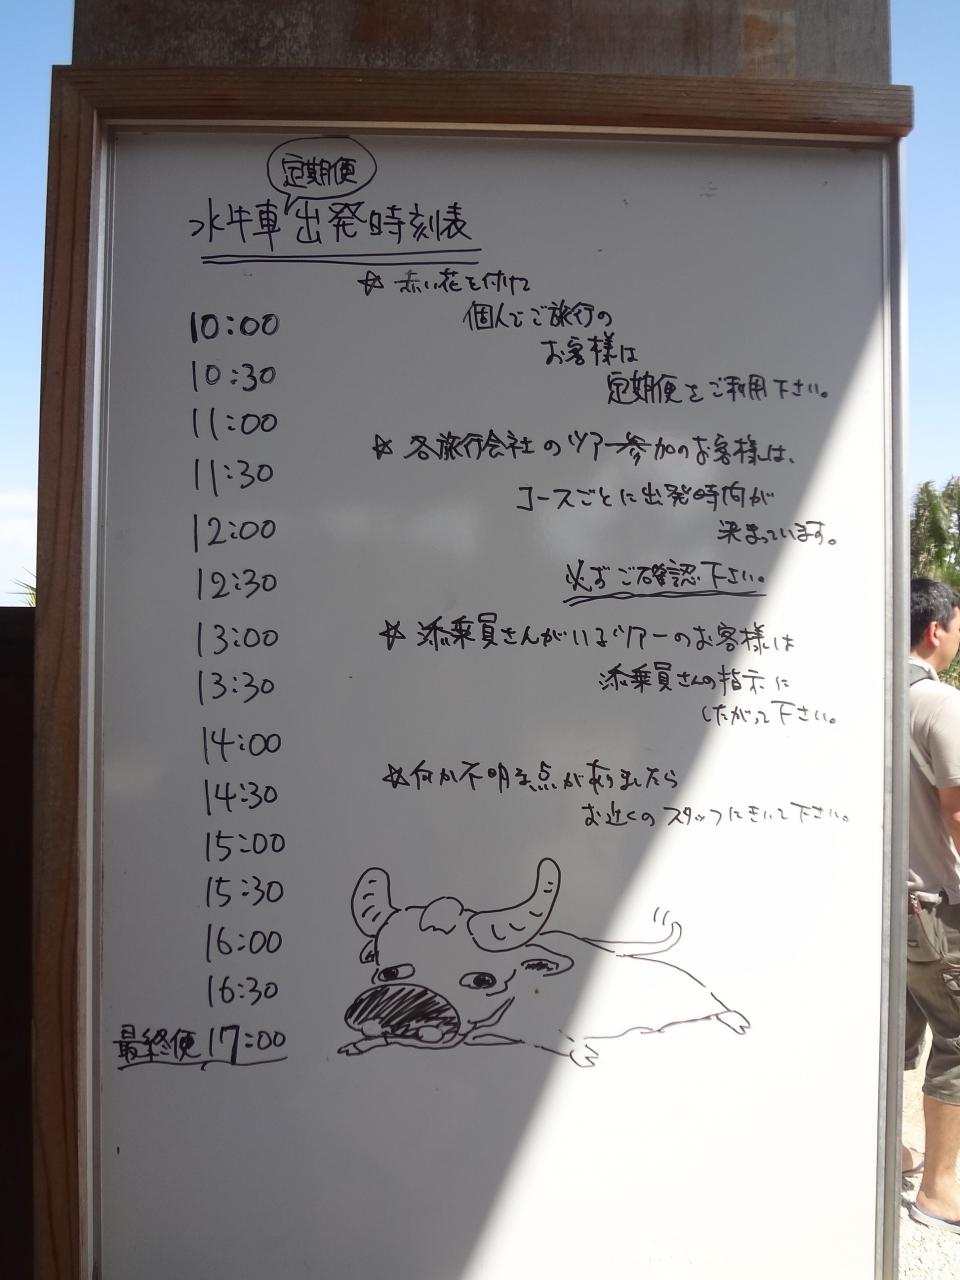 定期便
水牛車出発時刻表
☆赤い花を付けて
個人でご旅行の
お客様は
定期便をご利用下さい。
10:00
10:30
11:00
11:30
12:00
12:30
13:00
13:30
14:00
14:30
15:00
15:30
16:00
16:30
最終便 17:00
☆各旅行会社のツアー参加のお客様は、
コースごとに出発時間が
決まっています。
必ずご確認下さい。
☆添乗員さんがいるツアーのお客様は
添乗員さんの指示に
したがって下さい。
☆何か不明な点がありましたら
お近くのスタッフにきいて下さい。